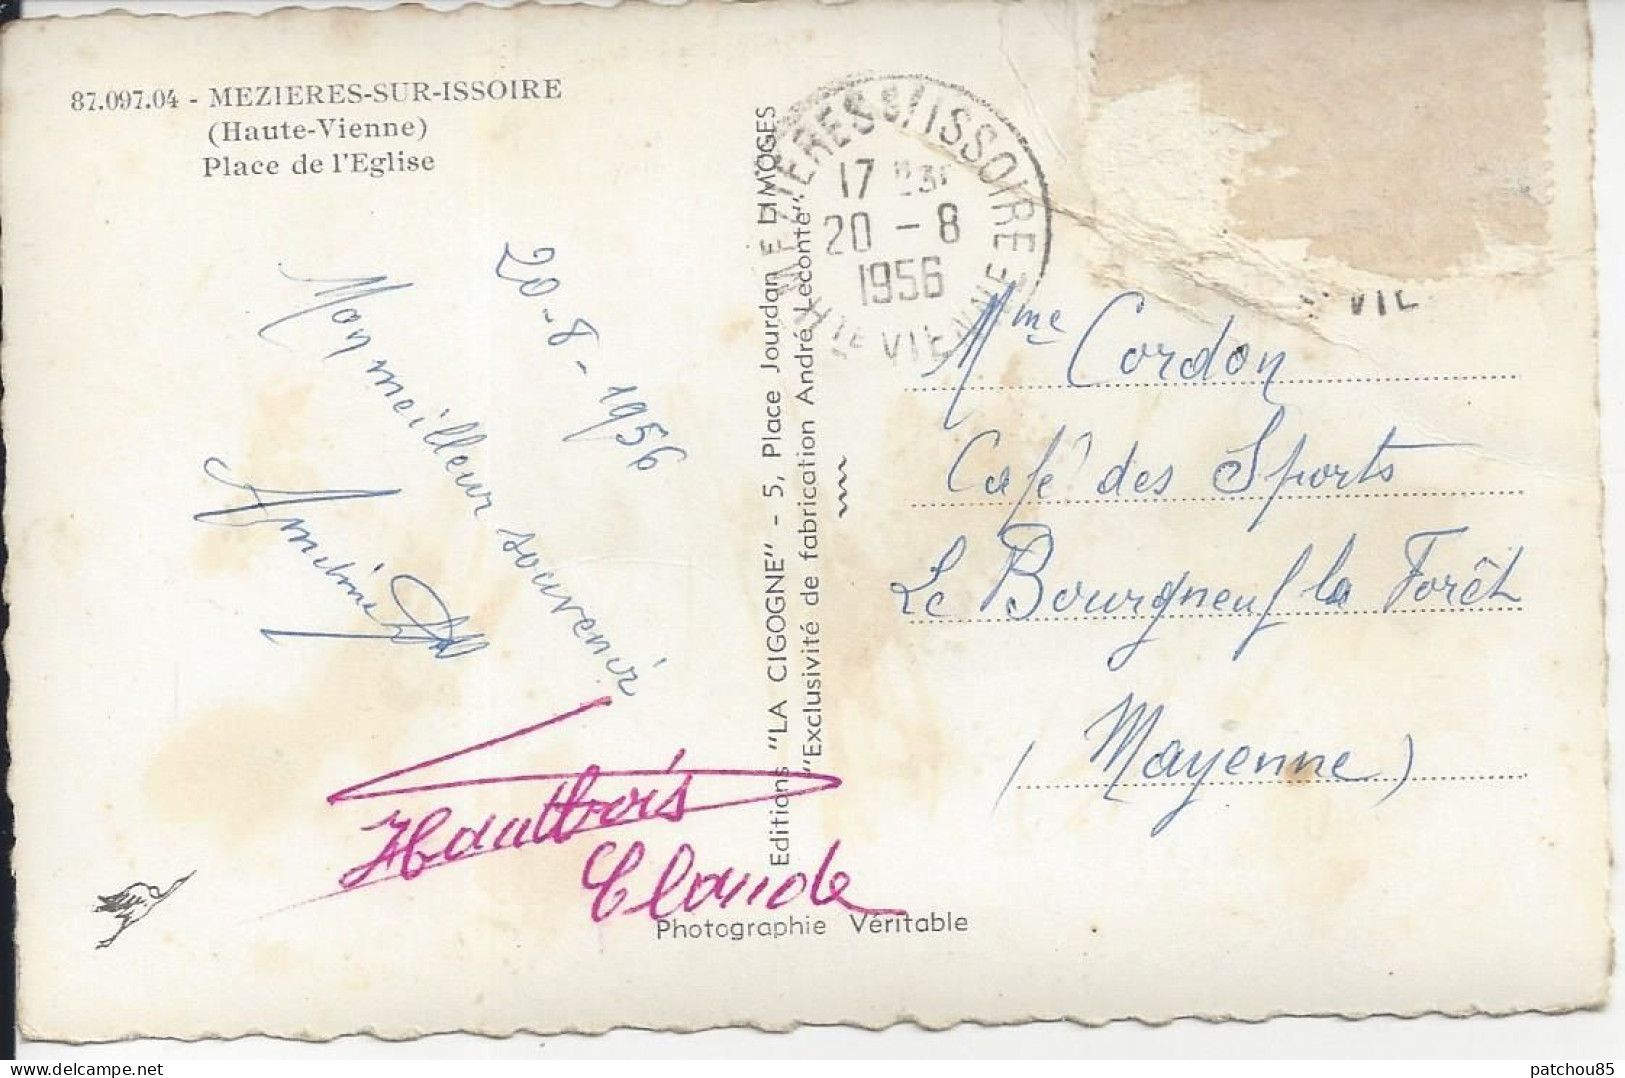 87.097.04 - MEZIERES-SUR-ISSOIRE
(Haute-Vienne)
Place de l'Eglise
20-8-1956
Mon meilleur souvenir
Hautbois
Claude
Editions "LA CIGOGNE" - 5, Place Jourdan LIMOGES
"Exclusivité de fabrication André Leconte"
Photographie Véritable
MEZIERES S/ISSOIRE
17
20 - 8
1956
HTE VIENNE
VIE
Mme Cordon
Café des Sports
Le Bourgneuf la Forêt
(Mayenne)
patchou85